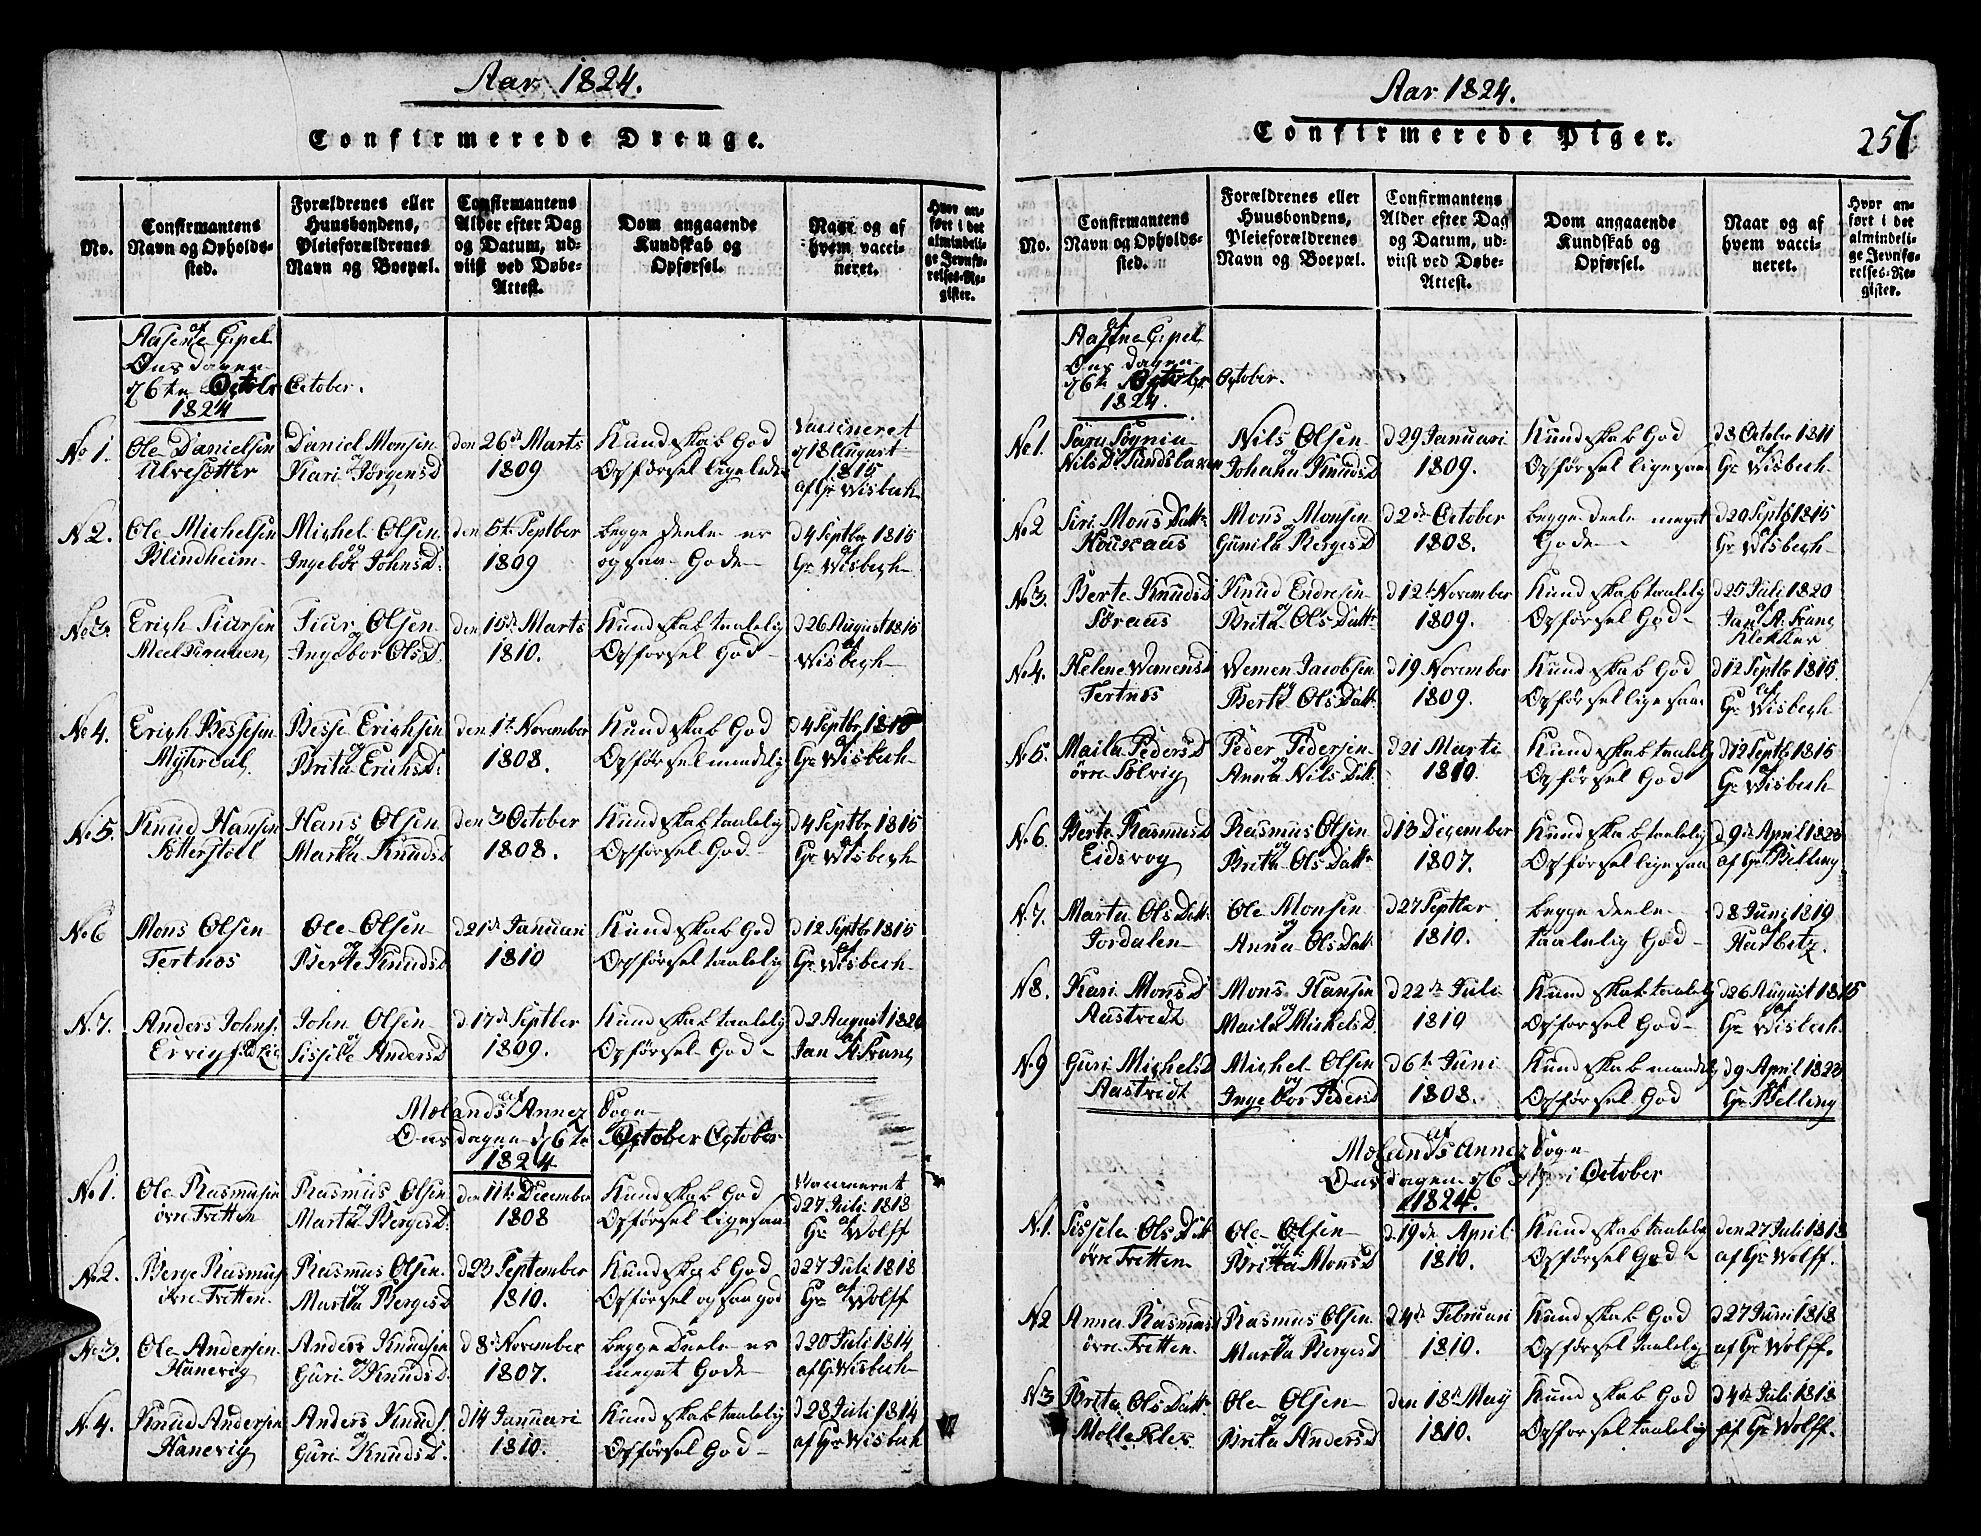 Aar 1824.
Confirmerede Drenge.
No.
Confirmantens
Navn og Opholds-
sted.
Forældrenes eller
Huusbondens,
Pleieforældrenes
Navn og Boepæl.
Confirmantens
Alder efter Dag
og Datum, ud-
viist ved Døbe-
Attest.
Dom angaaende
Kundskab og
Opførsel.
Naar og af
hvem vacci-
neret.
Hvor an-
ført i det
almindeli-
ge Jevnfø-
relses-Re-
gister.
af
Aasene
Ons dagen
October.
1824
No 1.
Ole Danielsen
Daniel Monsen
og
Kari Jørgensd
den 26de Marts
1809
Kundskab God
Opførsel ligeledes
Vaccineret
18 August
1815
af Hr Wisbech
No 2.
Ole Michelsen
Blindheim
Michel Olsen
og
Ingebor Johnsd:
den 5te Septber
1809
begge deele er
ogsaa Gode
d 4 Septbr 1815
af
Hr Wisbech
No 3.
Olsen
og
Ingebor Olsd.
den 15de Marts
1810.
Kundskab taalelig
Opførsel God
d 26 August 1815
af
Wisbech
No 4.
Erich Bessesen
Myhrdal
Besse Erichsen
og
Brita Erichsd:
den 1te November
1808.
Kundskab God
Opførsel maadelig
d 4 Septbr 1815
af
Hr Wisbech
No 5.
Knud Hansen
Hans Olsen
og
Marta Knudsd
den 3 October
1808.
Kundskab taalelig
Opførsel God
d 4 Septbr 1815
af
Hr Wisbech
No 6
Mons Olsen
Tertnes
Ole Olsen
og
Berte Knudsd.
d 21de Januari
1810
Kundskab God
Opførsel taalelig
d 12 Septbr 1815
af
Hr Wisbech
No 7.
Anders Johns.
John Olsen
og
Sissele Andersd
d. 17de Septber
1809.
Kundskab taalelig
Opførsel God
d 2 August 1820
af
Jan A. Frang
af
Mølands Annex Sogn
Onsdagen October October
1824
No 1.
Ole Rasmusen
øvre Tretten
Rasmus Olsen
og
Marta Bergesd.
den 11te December
1808
Kundskab God
Opførsel ligesaa
Vaccineret
d 27 Juli 1818
af
Hr Wolff
No 2.
Berge Rasmus
øvre Tretten
Rasmus Olsen
og
Marta Bergesd
d 23 September
1810.
Kundskab God
Opførsel og saa god
d 27 Juli 1818
af
Hr Wolff
No 3.
Ole Andersen
Hanevig
Anders Knudsen
og
Guri Knudsd.
d 8de November
1807.
begge Deele er
meget Gode
d 20 Juli 1814
af Hr Wisbech
No 4.
Knud Andersen
Hanevig
Anders Knuds.
og
Guri Knudsd.
d 14 Januari
1810.
Kundskab taalelig
Opførsel God
d 28 Juli 1814
af Hr Wisbech
Aar 1824.
Confirmerede Piger.
257
No.
Confirmantens
Navn og Opholds-
sted.
Forældrenes eller
Huusbondens,
Pleieforældrenes
Navn og Boepæl.
Confirmantens
Alder efter Dag
og Datum, ud-
viist ved Døbe-
Attest.
Dom angaaende
Kundskab og
Opførsel.
Naar og af
hvem vacci-
neret.
Hvor an-
ført i det
almindeli-
ge Jevnfø-
relses-Re-
gister.
af
Aasene
Ons dagen
October.
1824.
No 1.
Nils Olsen
og
Johana Knudsd
d 29 Januari
1809.
Kundskab God
Opførsel ligesaa
d 8 October 1811
Hr Wisbech
No 2
Siri Mons Datt
Mons Monsen
og
Gunila Bergesd
d 2de October
1808.
begge deele meget
Gode
d 20 Septb 1815
af
Hr Wisbech
No 3.
Berte Knudsd
Knud Endresen
og
Brita Ols Datt
d 12te November
1809.
Kundskab taalelig
Opførsel God
d 25 Juli 1820
af
Jan A. Frang
Klokker
No 4.
Helene Wemensd
Tertnes
Wemen Jacobsen
og
Berte Ols Datt.
d 19 November
1809.
Kundskab God
Opførsel ligesaa
d 12 Septbr 1815
af
Hr Wisbech
No 5.
Maila Pedersd
øvre
Peder Pedersen
og
Anna Nils Datt.
d 21 Marti
1810.
Kundskab taalelig
Opførsel God
d 12 Septb 1815
af
Hr Wisbech
No 6.
Berte Rasmusd
Eidsvog
Rasmus Olsen
og
Brita Ols Datt
d 13 December
1807.
Kundskab taalelig
Opførsel ligesaa
d 9de April 1823
af Hr Belling
No 7.
Marta Ols Datt.
Jordalen
Ole Monsen
og
Anna Ols Datt
d 27 Septber
1810.
begge deele
taalelig God
d 8 Juni 1819
af
Harbetz.
No 8.
Kari Monsd
Aastvedt
Mons Hansen
og
Maila Mickelsd.
d 22de Juli
1810
Kundskab taalelig
Opførsel God
d 26 August 1815
af
Hr Wisbech
No 9
Guri Michelsd
Aastvedt
Michel Olsen
og
Ingebor Pedersd
d 6te Juni
1808.
Kundskab maadelig
Opførsel God
d 9 April 1823
af
Hr Belling
af
Mølands Annex Sogn
Onsdagen October
1824.
No 1.
Sissele Ols Datt
øvre Tretten
Ole Olsen
og
Britta Monsd
d. 19de April
1810.
Kundskab taalelig
Opførsel God
den 27 Juli 1818
af Hr Wolff.
No 2
Anna Rasmusd
øvre Tretten.
Rasmus Olsen
og
Marta Bergesd
d 4de Februari
1810.
Kundskab God
Opførsel taalelig
d 27 Juni 1818
af Hr Wolff.
No 3
Brita Ols Datt
Ole Olsen
og
Brita Andersd
den 18de May
1810.
Kundskab God
Opførsel taalelig
d 4de Juli 1818
af Hr Wolff.